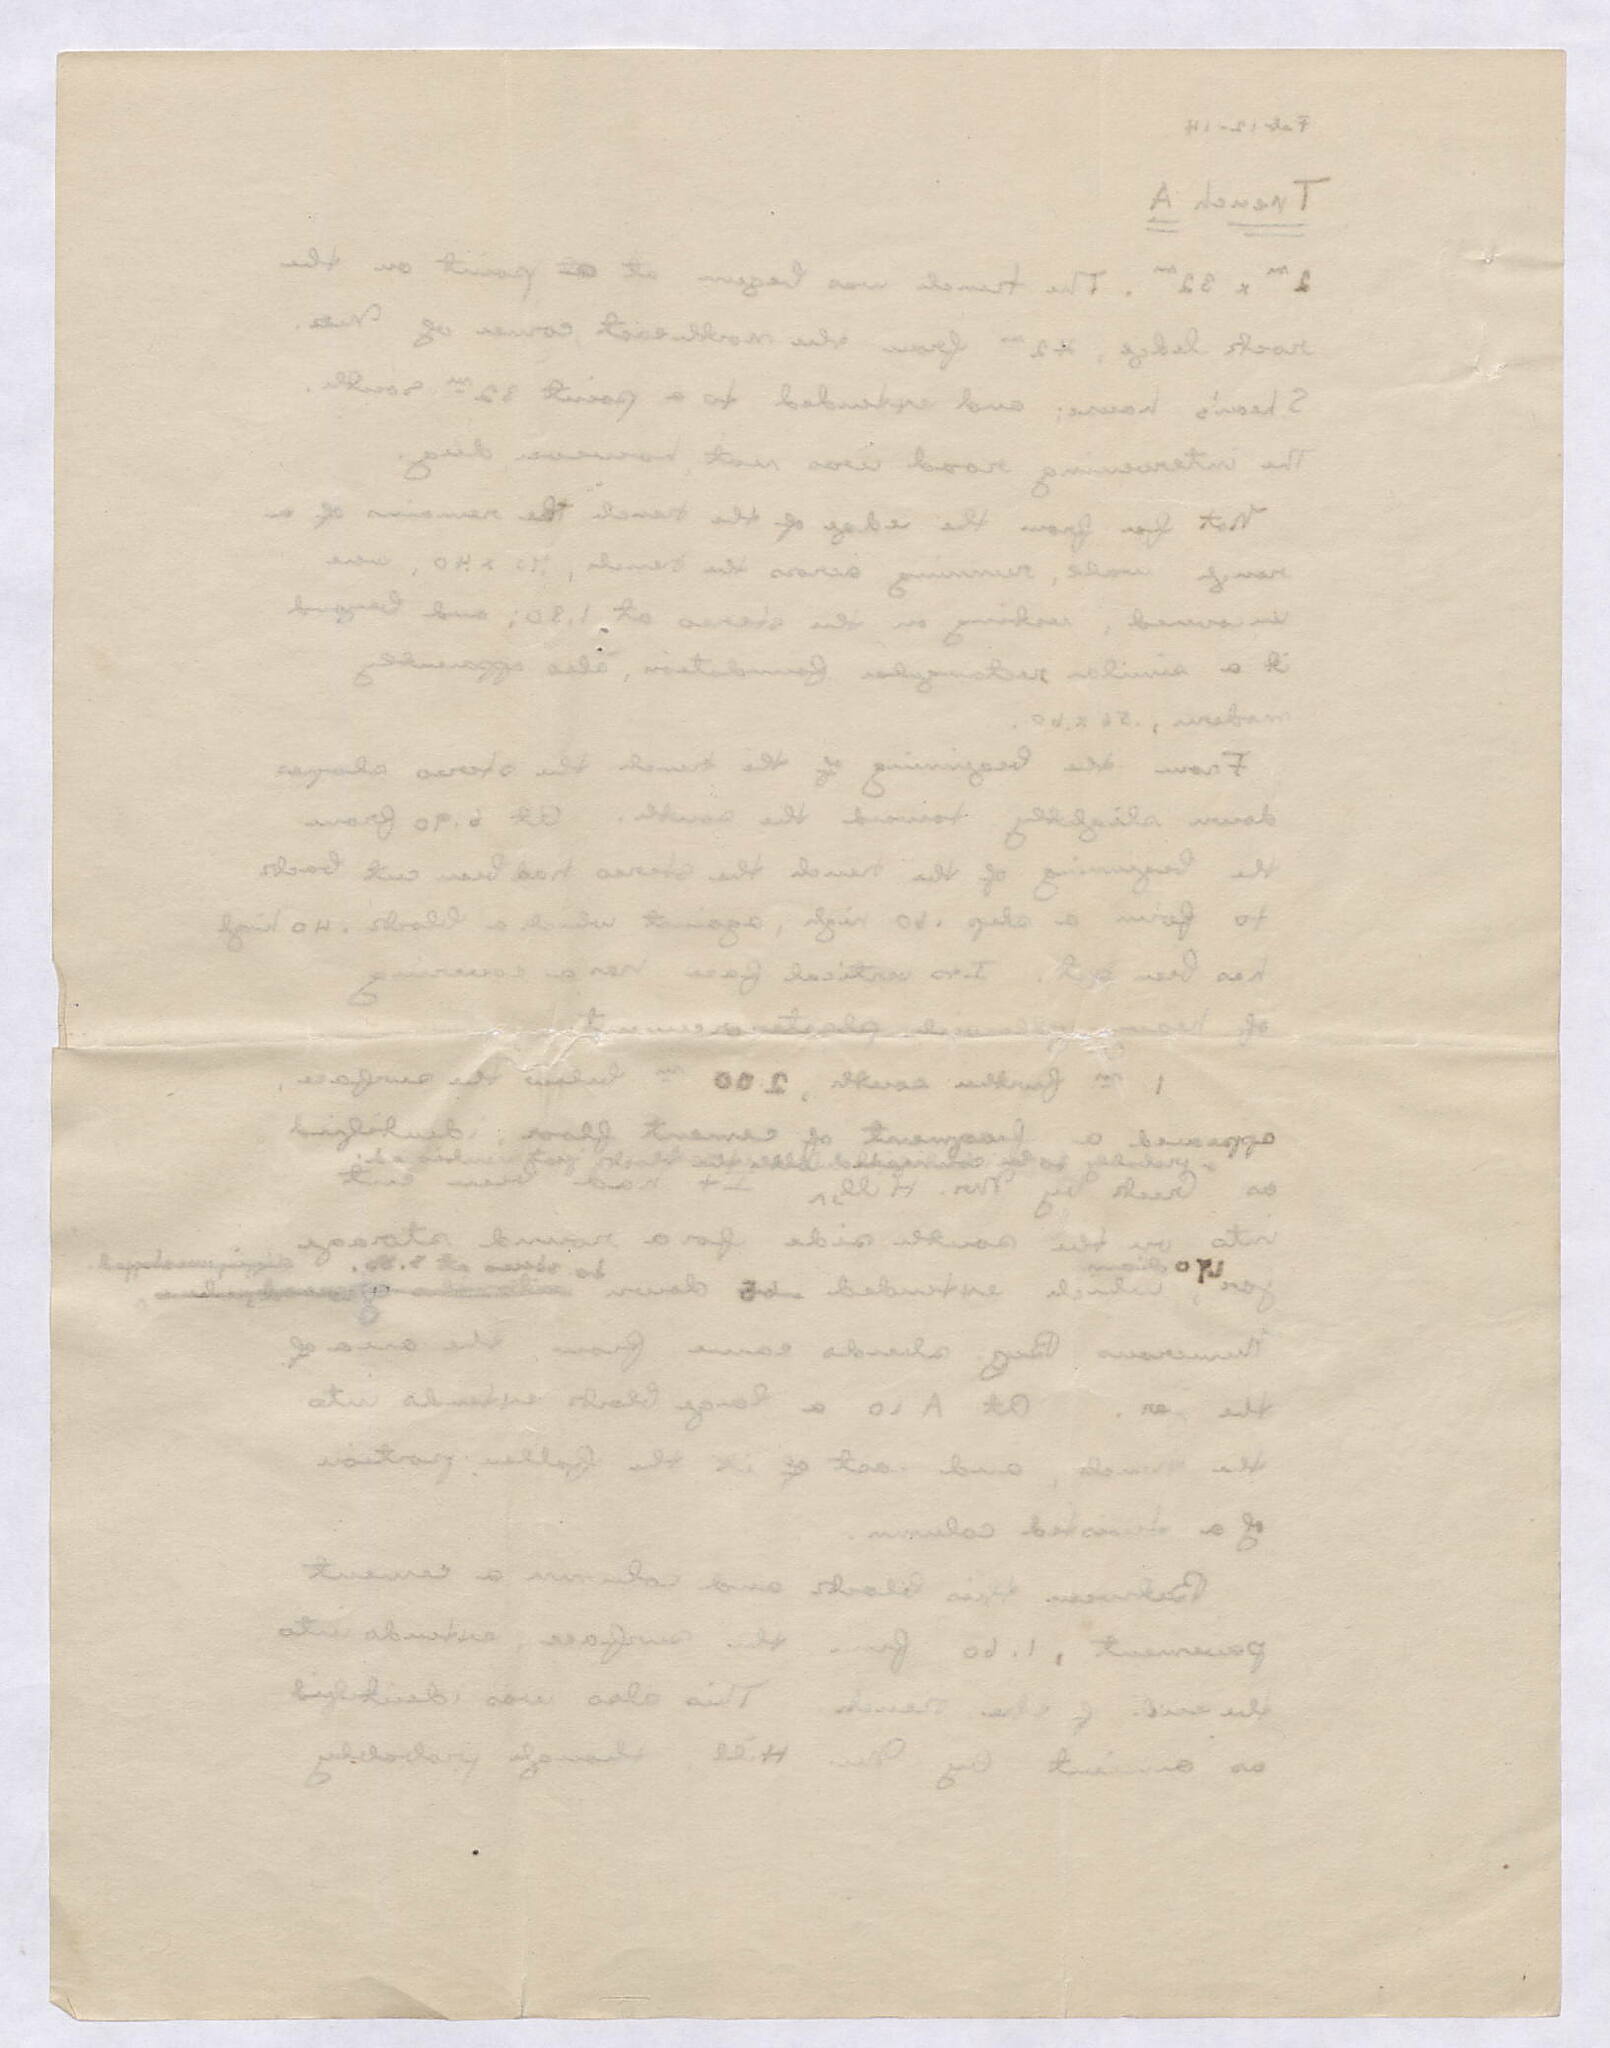 Feb 12-14
Trench A
2 m x 32 m. The trench was begun at point on the
rock ledge, 42 m from the northeast corner of Mr.
Shear's house; and extended to a point 32 m south.
The intervening road was not, however, dug.
Not far from the edge of the trench the remains of a
rough wall, running across the trench, x .40, were
uncovered, resting on the stereo at 1.30; and beyond
it a similar rectangular foundation, also apparently
modern, .56 x .60.
From the beginning of the trench the stereo slopes
down slightly toward the south. At 6.90 from
the beginning of the trench the stereo had been cut back
to form a step .60 high, against which a block .40 high
has been set. Its vertical face has a covering
of cement
1 m further south, 2.00 m below the surface,
appeared a fragment of cement floor, identified
probably to be connected with the block just
as Greek by Mr. Hill. It had been cut
into on the south side for a round storage
1.90 diam to stereo at 3.50.
jar, which extended .65 down
Numerous Byz. sherds came from the area of
the jar. At A 10 a large block extends into
the trench, and east of it the fallen portion
of a twisted column.
Between this block and column a cement
pavement, 1.60 from the surface, extends into
the end of the trench This also was identified
as ancient by Mr. Hill, though probably